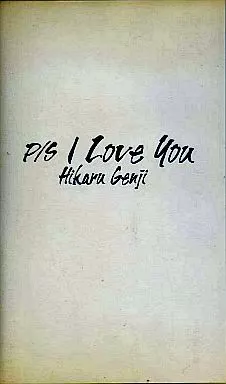 P/S I Love You
Hikaru Genji